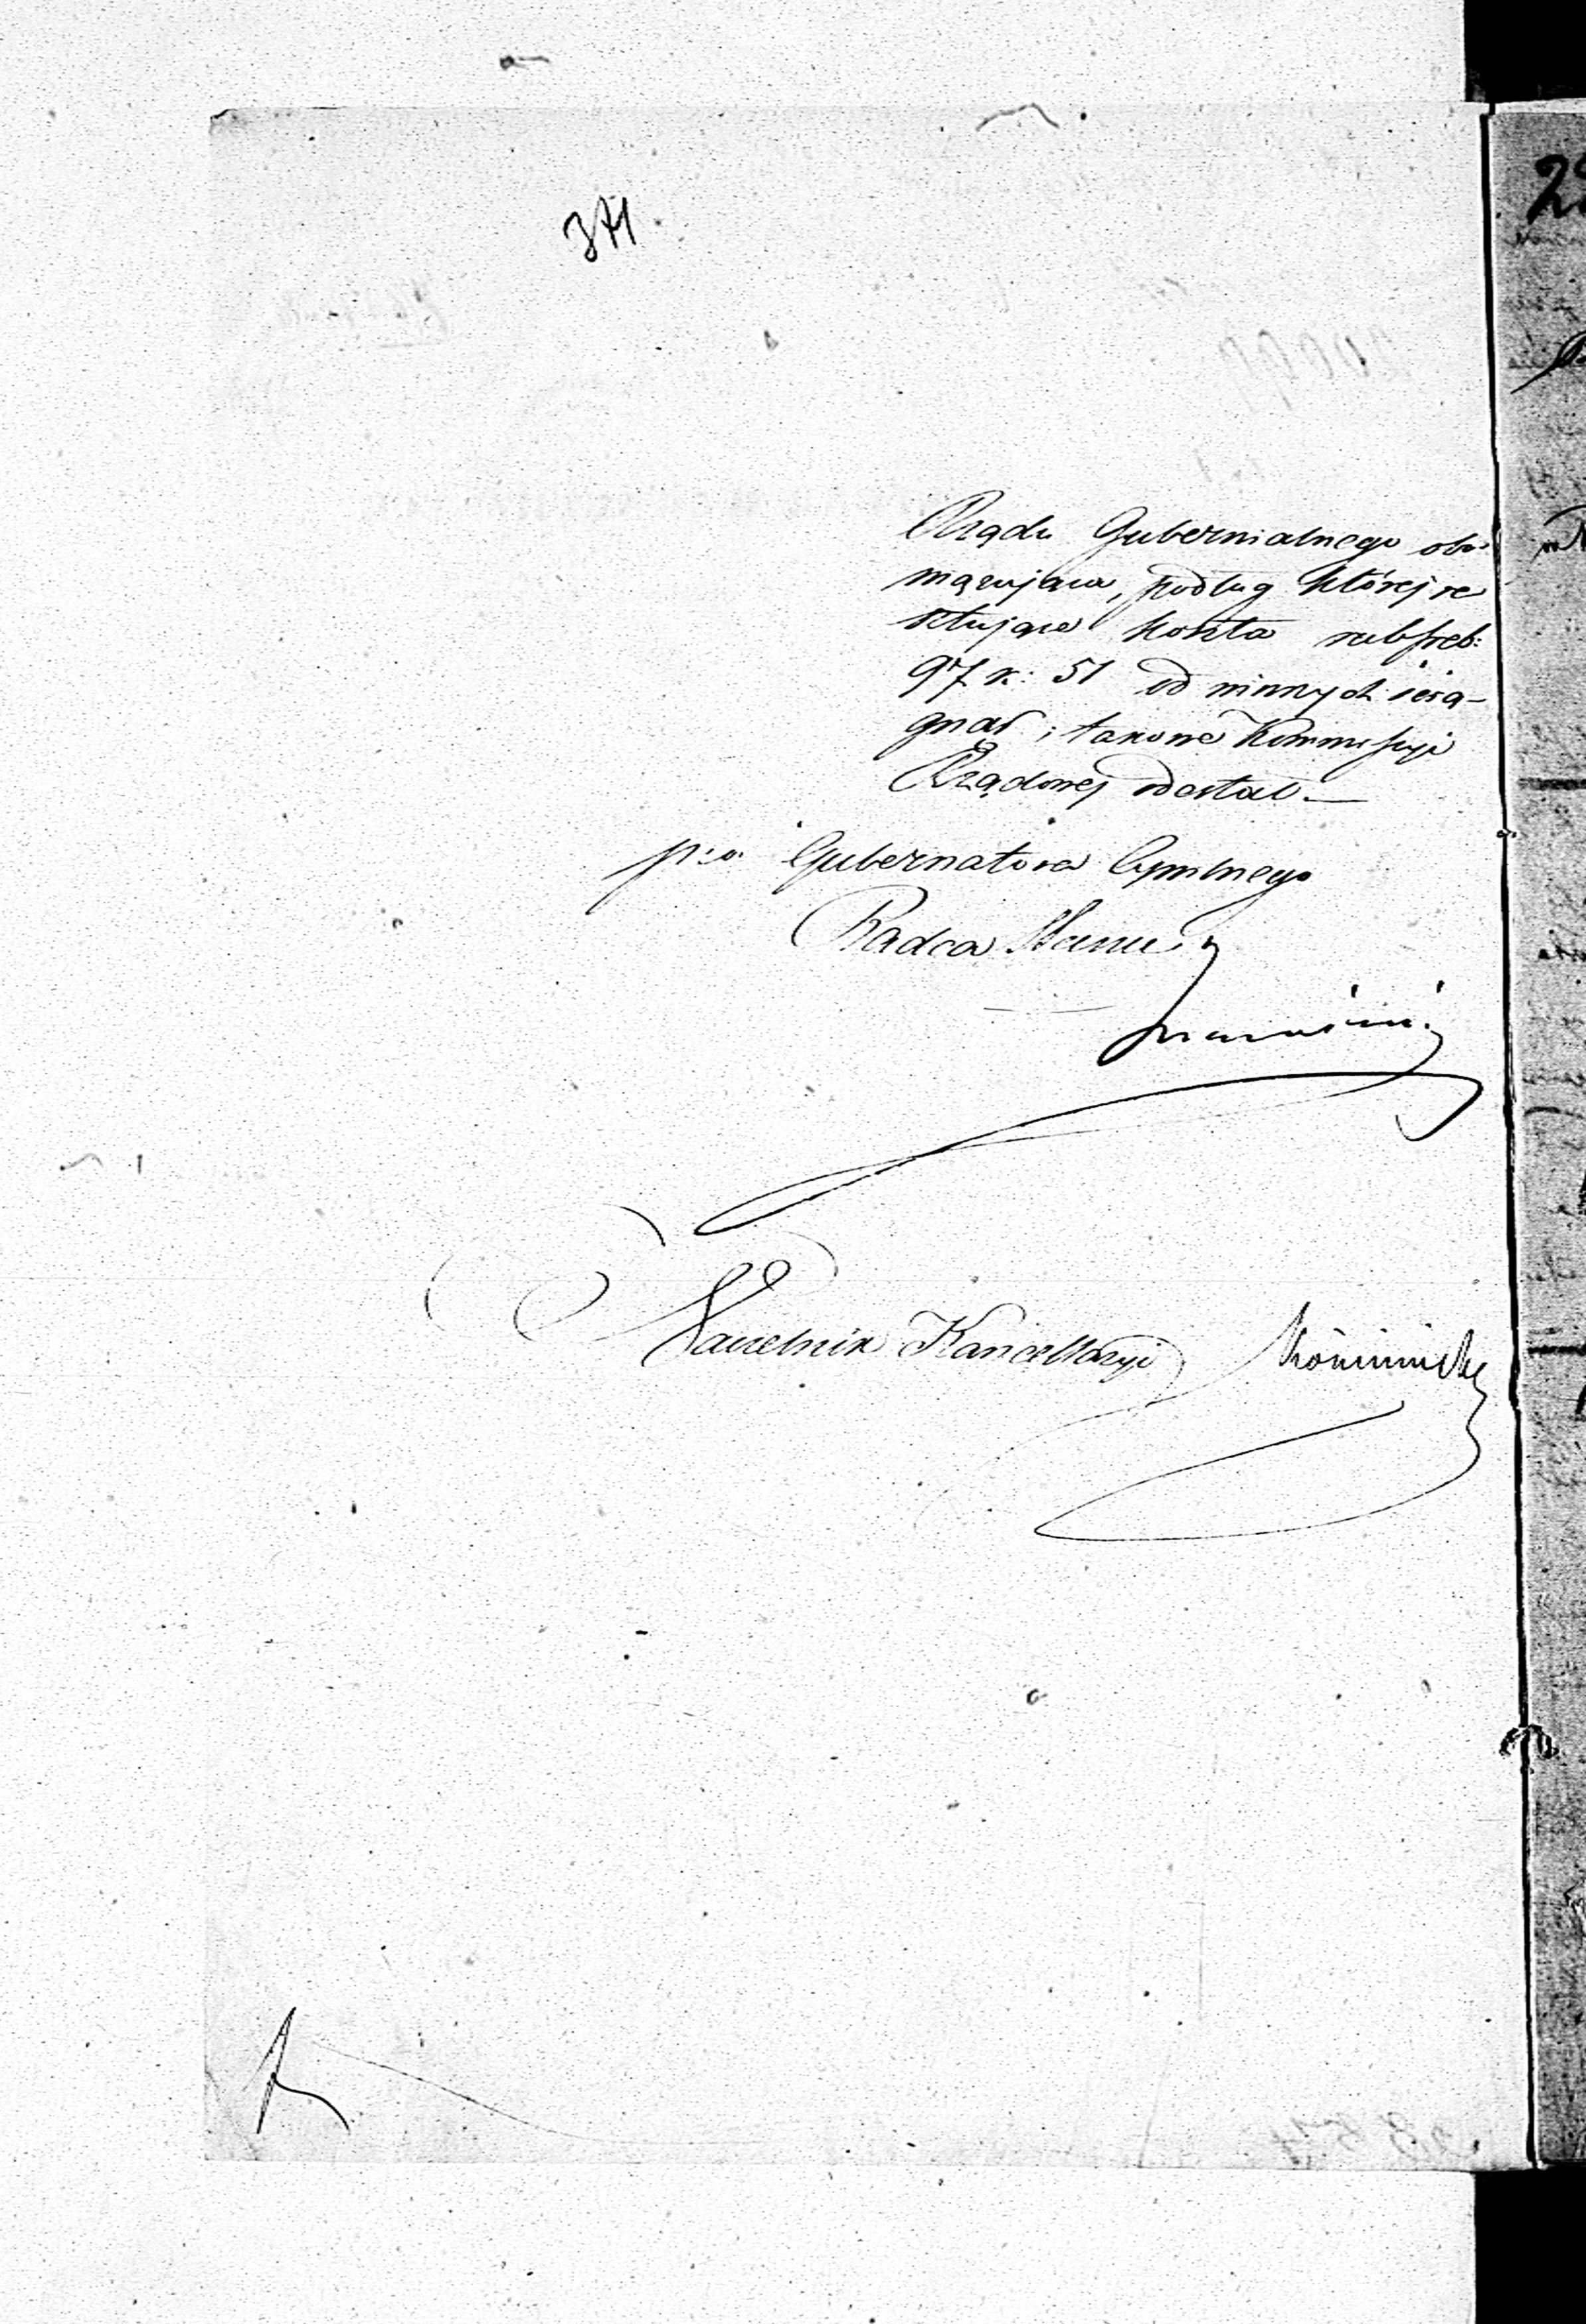 371.
Rządu Gubernialnego obo-
wiązująca, podług której re
sztujące koszta rubsreb:
97 k: 51 od winnych ścią-
gnąć i takowe Kommissyi
Rządowej odesłać.—
p.o. Gubernatora Cywilnego
Radca Stanu
Naczelnik Kancellaryi